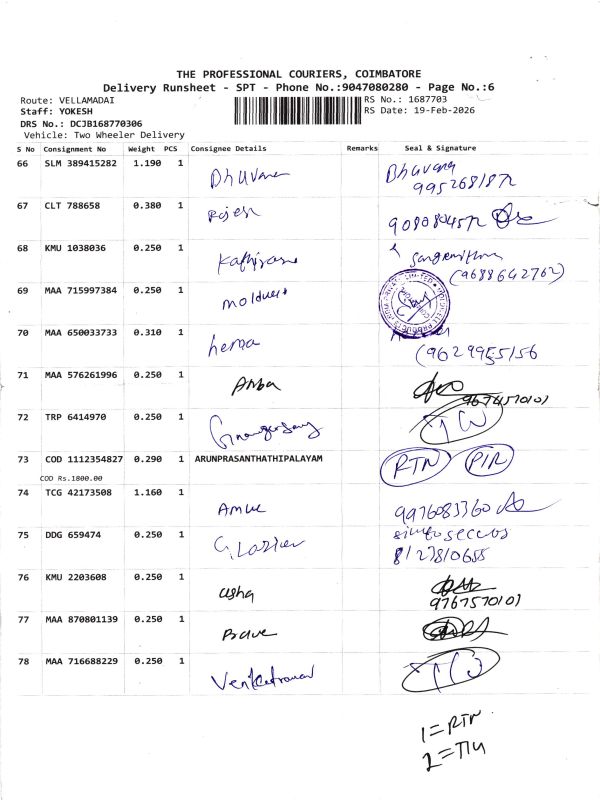 THE PROFESSIONAL COURIERS, COIMBATORE
Delivery Runsheet - SPT - Phone No.:9047080280 - Page No.:6
Route: VELLAMADAI
RS No.: 1687703
Staff: YOKESH
RS Date: 19-Feb-2026
DRS No.: DCJB168770306
Vehicle: Two Wheeler Delivery
S No Consignment No Weight PCS Consignee Details Remarks Seal & Signature
66 SLM 389415282 1.190 1 Bhuvana Bhuvana
9952681872
67 CLT 788658 0.380 1 Rajesh
68 KMU 1038036 0.250 1
(9688642762)
69 MAA 715997384 0.250 1
70 MAA 650033733 0.310 1 hema
(9629955156
71 MAA 576261996 0.250 1 Anba
72 TRP 6414970 0.250 1
73 COD 1112354827 0.290 1 ARUNPRASANTHATHIPALAYAM RTN PIR
COD Rs.1800.00
74 TCG 42173508 1.160 1 9976083360
75 DDG 659474 0.250 1
8127810688
76 KMU 2203608 0.250 1 usha
9767570101
77 MAA 870801139 0.250 1
78 MAA 716688229 0.250 1 Venkatraman
1=RTN